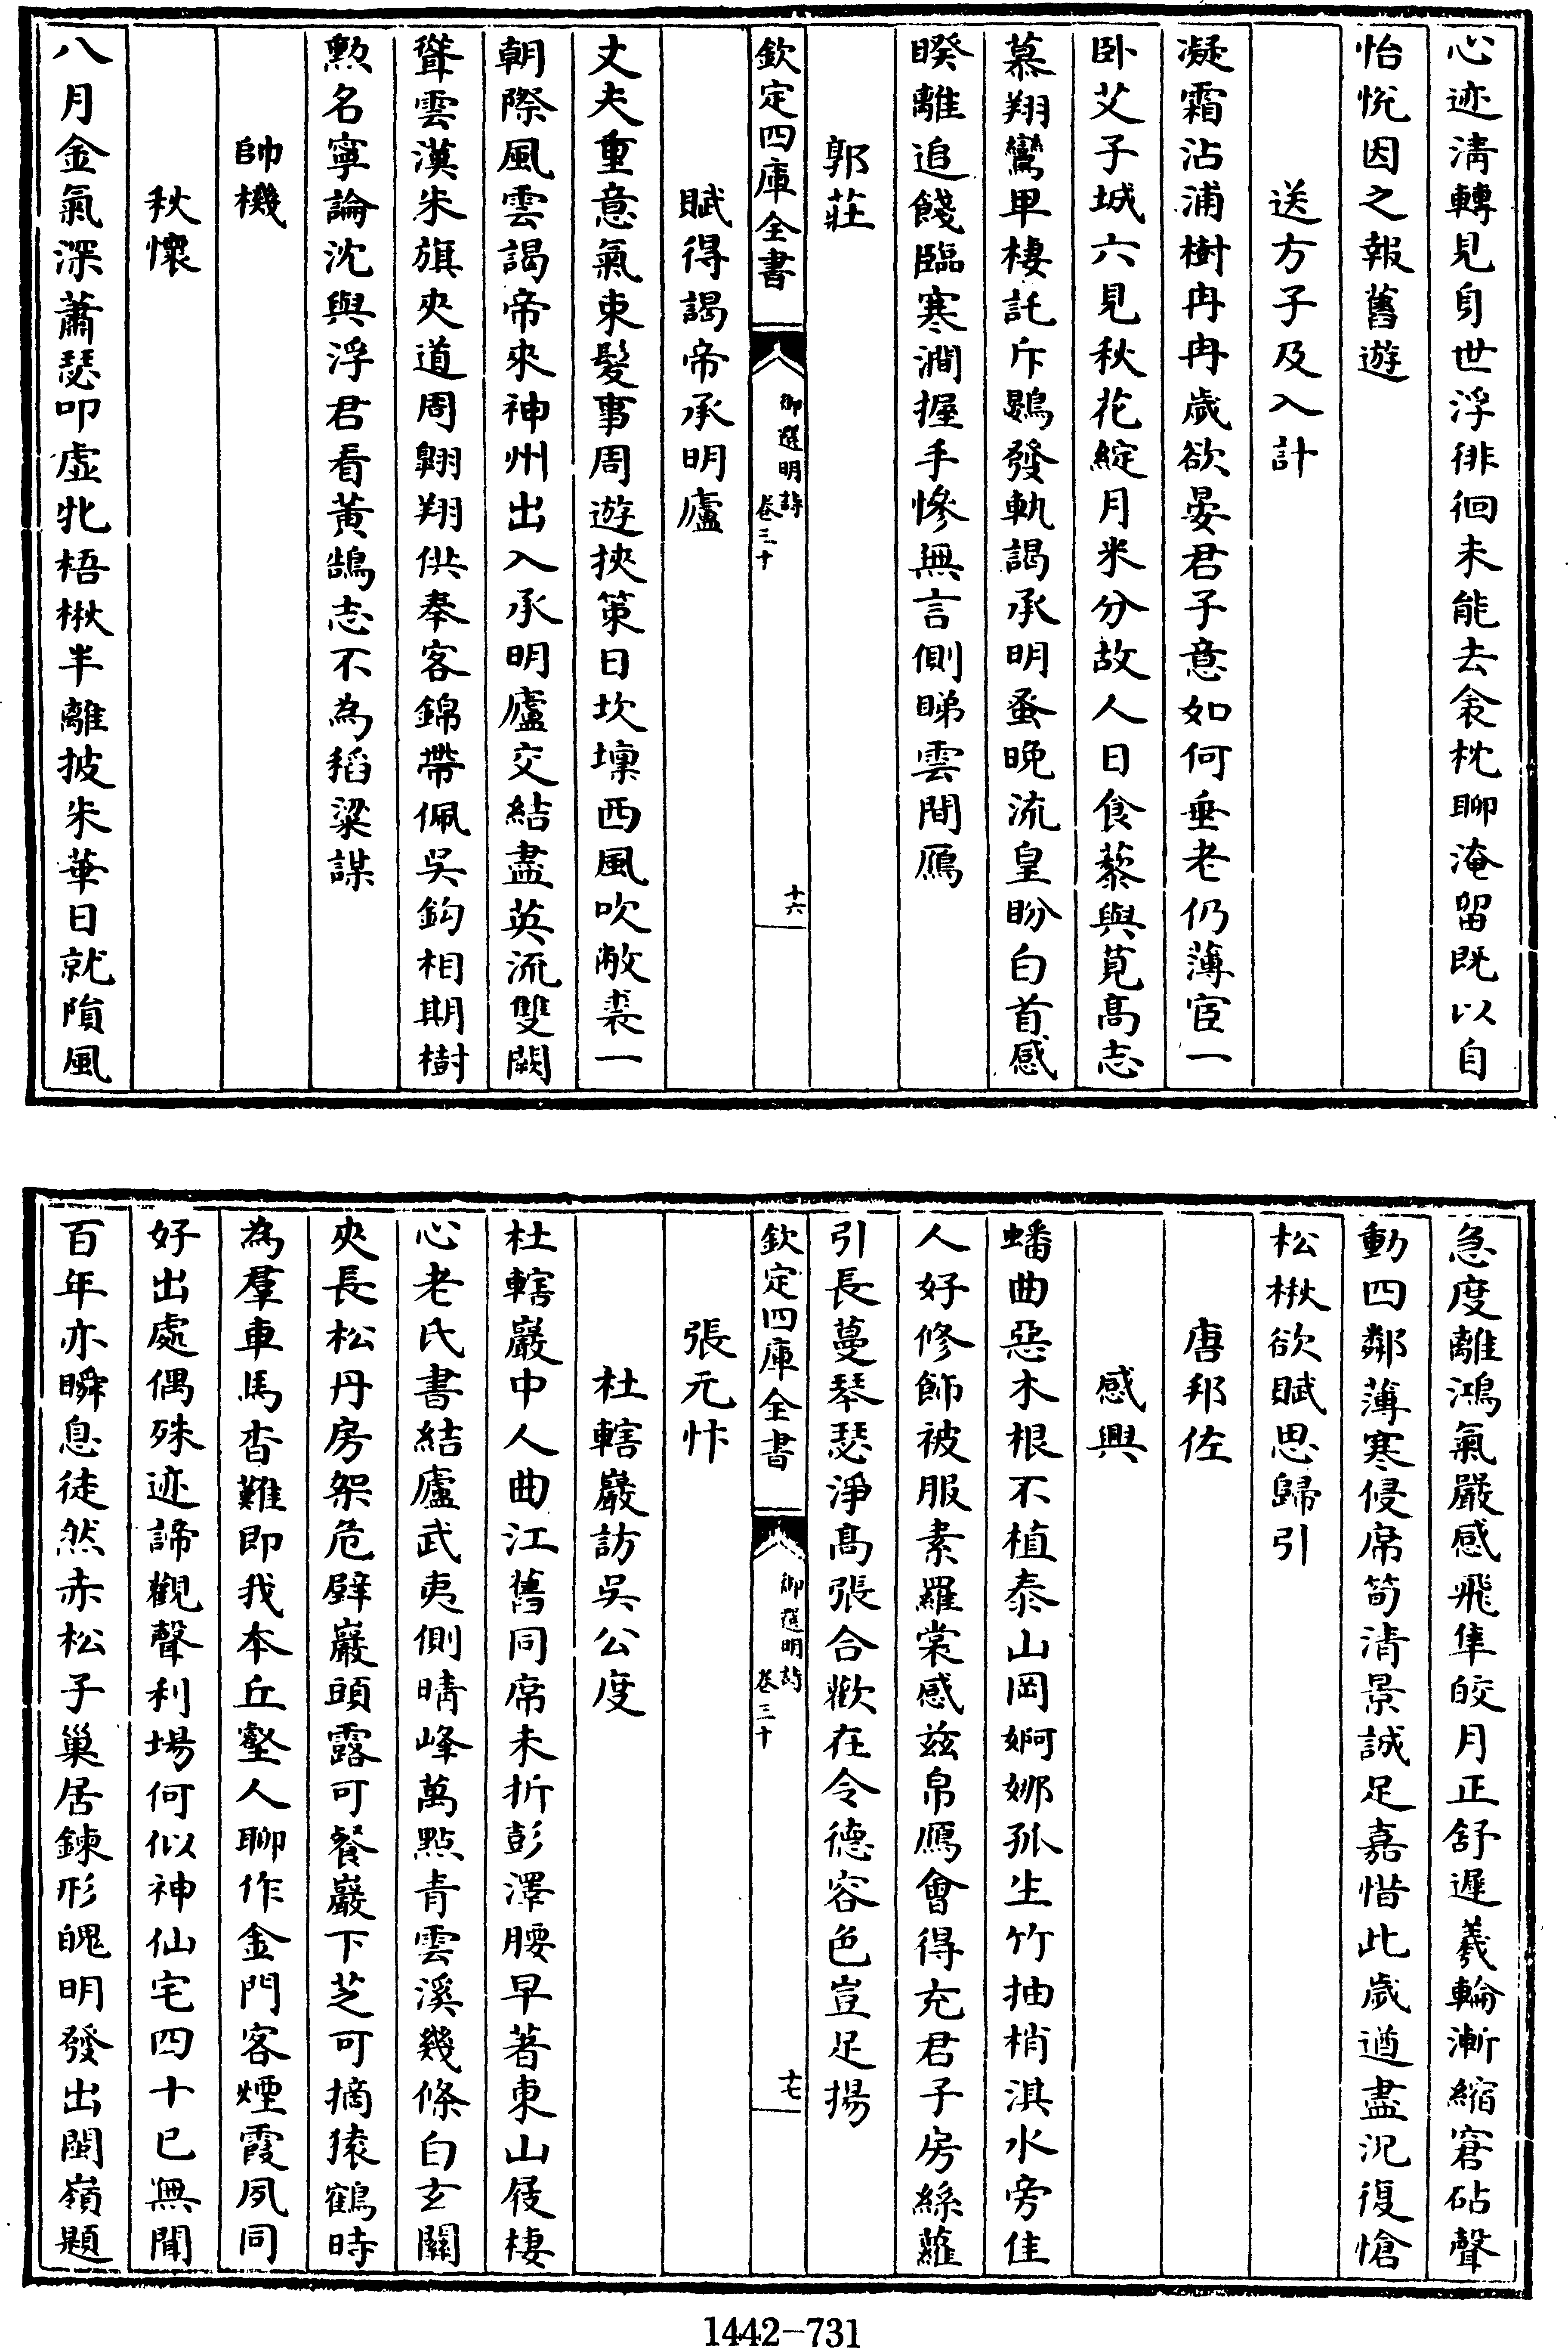 心迹淸轉見身世浮徘徊未能去衾枕聊淹留既以自
怡悅因之報舊遊
送方子及入計
凝霜沾浦樹冉冉歲欲晏君子意如何垂老仍薄宦一
卧艾子城六見秋花綻月米分故人日食藜與莧高志
慕翔鸞卑棲託斥鷃發軔謁承明蚤晚流皇盼白首感
睽離追餞臨寒澗握手慘無言側睇雲間鴈
郭莊
欽定四庫全書
御選明詩
卷三十
十六
賦得謁帝承明廬
丈夫重意氣束髮事周遊挾策日坎壈西風吹敝裘一
朝際風雲謁帝來神州出入承明廬交結盡英流雙闕
聳雲漢朱旗夾道周翺翔供奉客錦帶佩吳鈎相期樹
勲名寧論沈與浮君看黃鵠志不為稻粱謀
帥機
秋懷
八月金氣深蕭瑟叩虛牝梧楸半離披朱華日就隕風
急度離鴻氣嚴感飛隼皎月正舒遲羲輪漸縮窘砧聲
動四鄰薄寒侵席筍清景誠足嘉惜此歲遒盡況復愴
松楸欲賦思歸引
唐邦佐
感興
蟠曲惡木根不植泰山岡婀娜孤生竹抽梢淇水旁佳
人好修飾被服素羅裳感茲帛鴈會得充君子房絲蘿
引長蔓琴瑟淨高張合歡在令德容色豈足揚
欽定四庫全書
御選明詩
卷三十
十七
張元忭
杜轄巖訪吳公度
杜轄巖中人曲江舊同席未折彭澤腰早著東山屐棲
心老氏書結廬武夷側晴峰萬點青雲溪幾條白玄關
夾長松丹房架危壁巖頭露可餐巖下芝可摘猿鶴時
為羣車馬杳難即我本丘壑人聊作金門客煙霞夙同
好出處偶殊迹諦觀聲利場何似神仙宅四十已無聞
百年亦瞬息徒然赤松子巢居鍊形魄明發出閩嶺題
1442-731